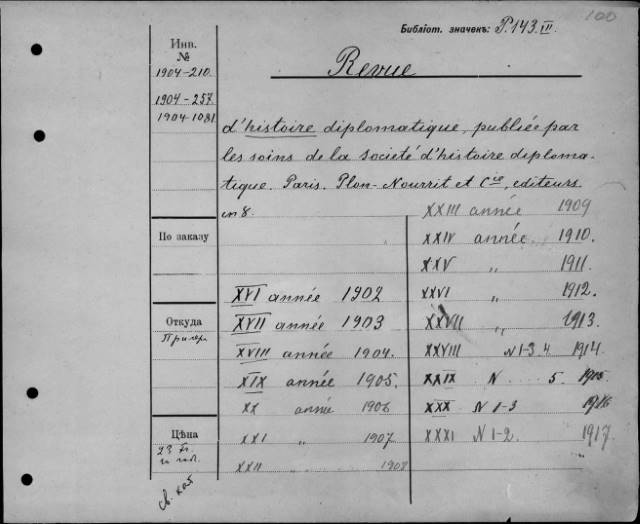 100
Библіот. значекъ: P.143.III.
Инв.
№
1904-210.
1904-257
1904-1081
По заказу
Откуда
Цѣна
23 fr.
св. кат
Revue
d'histoire diplomatique, publiée par
les soins de la société d'histoire diploma-
tique. Paris. Plon-Nourrit et Cie, editeurs
in 8.
XVI année 1902
XVII année 1903
XVIII année 1904.
XIX année 1905.
XX année 1906
XXI " 1907
XXII " 1908
XXIII année 1909
XXIV année 1910.
XXV " 1911.
XXVI " 1912.
XXVII " 1913.
XXVIII N 1-3. 4. 1914
XXIX N 5. 1915
XXX N 1-3 1916
XXXI N 1-2. 1917